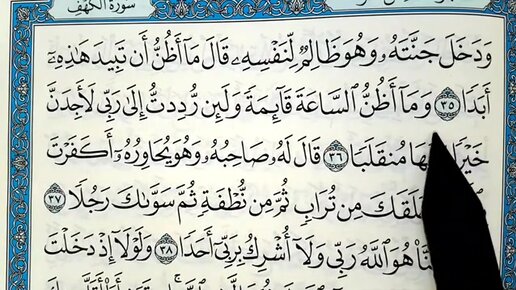 سورة الكهف
وَدَخَلَ جَنَّتَهُۥ وَهُوَ ظَالِمٌ لِّنَفْسِهِۦ قَالَ مَآ أَظُنُّ أَن تَبِيدَ هَٰذِهِۦٓ
أَبَدًا ٣٥ وَمَآ أَظُنُّ ٱلسَّاعَةَ قَآئِمَةً وَلَئِن رُّدِدتُّ إِلَىٰ رَبِّي لَأَجِدَنَّ
خَيْرًا مُنقَلَبًا ٣٦ قَالَ لَهُۥ صَاحِبُهُۥ وَهُوَ يُحَاوِرُهُۥٓ أَكَفَرْتَ
خَلَقَكَ مِن تُرَابٍ ثُمَّ مِن نُّطْفَةٍ ثُمَّ سَوَّىٰكَ رَجُلًا ٣٧
هُوَ ٱللَّهُ رَبِّي وَلَآ أُشْرِكُ بِرَبِّيٓ أَحَدًا ٣٨ وَلَوْلَآ إِذْ دَخَلْتَ